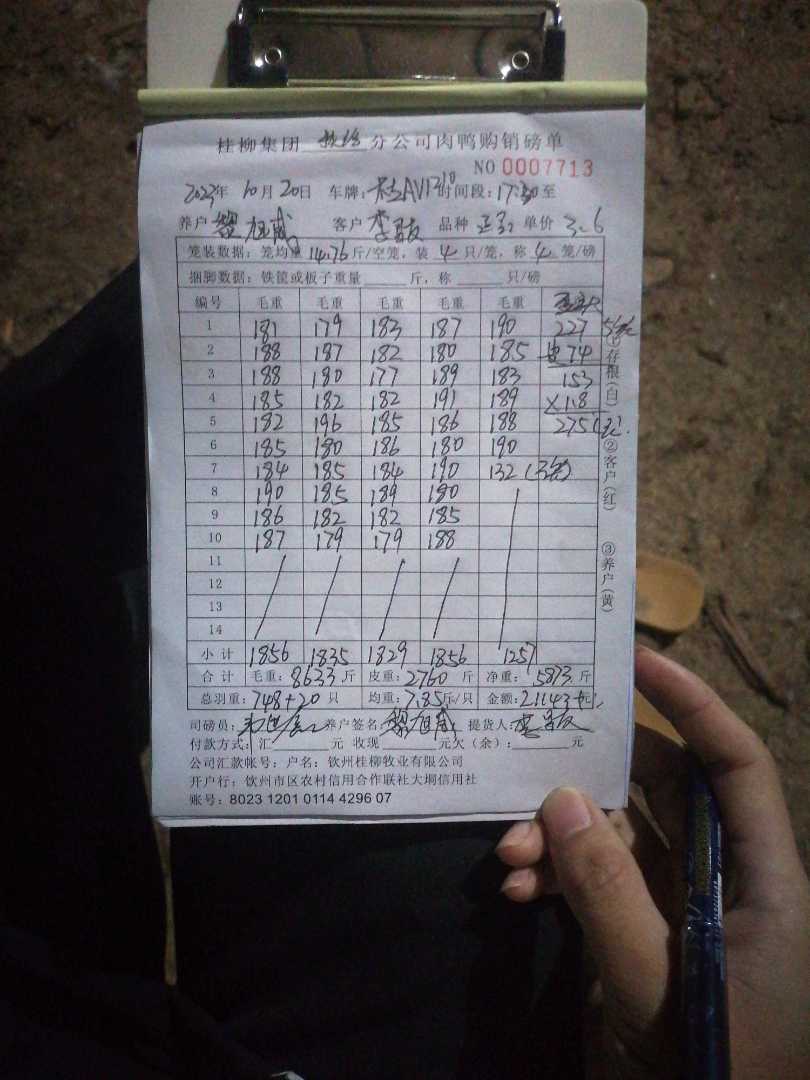 桂柳集团 分公司肉鸭购销磅单
NO 0007713
2023年 10月20日 车牌: 时间段: 17:30至
养户 黎旭威 客户 李 品种 单价 3.6
笼装数据: 笼均重 14.76 斤/空笼, 装 4 只/笼, 称 4 笼/磅
捆脚数据: 铁筐或板子重量 斤, 称 只/磅
编号 毛重 毛重 毛重 毛重 毛重
1 181 179 183 187 190 227
2 188 187 182 180 185 74
3 188 180 177 189 183 153
4 185 182 182 191 189 ×1.8
5 182 196 185 186 188 275元
6 185 180 186 180 190
7 184 185 184 190 132
8 190 185 189 190
9 186 182 182 185
10 187 179 179 188
11
12
13
14
小计 1856 1835 1829 1856 1257
合计 毛重: 8633 斤 皮重: 2760 斤 净重: 5873 斤
总羽重: 748+20 只 均重: 7.85 斤/只 金额: 21143 元
司磅员: 养户签名: 黎旭威 提货人: 李
付款方式: 汇 元 收现 元欠(余): 元
公司汇款帐号: 户名: 钦州桂柳牧业有限公司
开户行: 钦州市区农村信用合作联社大垌信用社
账号: 8023 1201 0114 4296 07
①存根(白)
②客户(红)
③养户(黄)